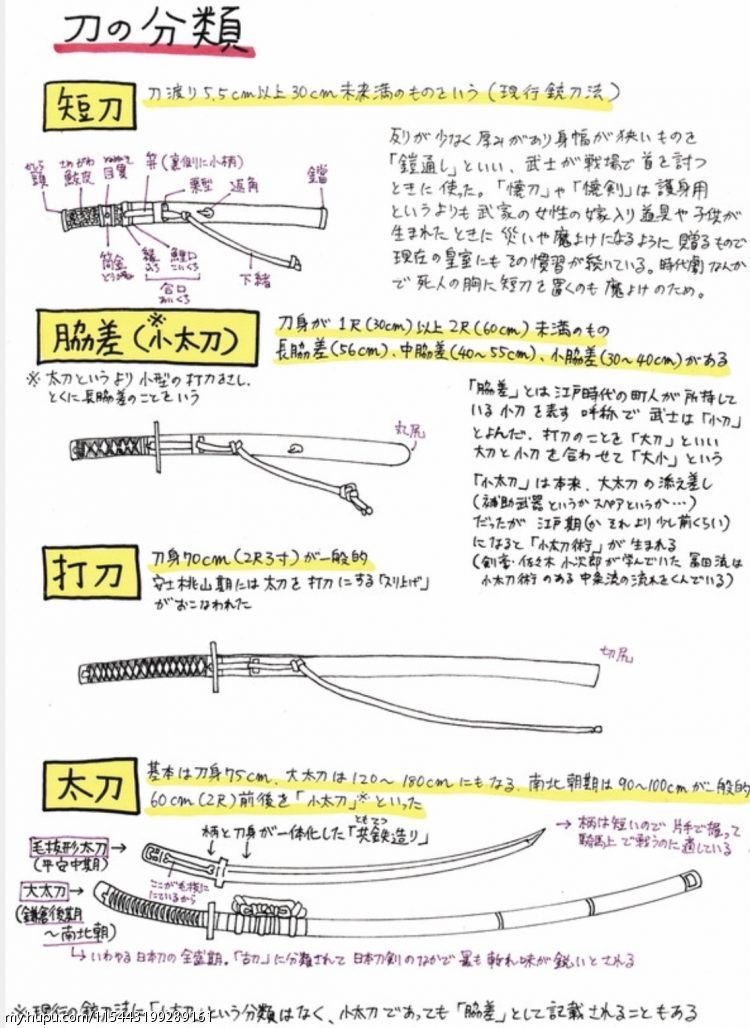 刀の分類
短刀
刀渡り5.5cm以上30cm未来満のものという(現行銃刀法)
反りが少なく厚みがあり身幅が狭いものを
「鎧通し」といい、武士が戦場で首を討つ
ときに使った。「懐刀」や「懐剣」は護身用
というよりも武家の女性の嫁入り道具や子供が
生まれたときに災いや魔よけになるように贈るもので
現在の皇室にもその慣習が続いている。時代劇なんか
で死人の胸に短刀を置くのも魔よけのため。
かしら
頭
さめがわ
鮫皮
目貫
笄(裏側に小柄)
栗型
返角
鐺
筒金
縁
ふち
鯉口
こいくち
合口
あいくち
下緒
脇差(小太刀)
※
刀身が1尺(30cm)以上2尺(60cm)未満のもの
長脇差(56cm)、中脇差(40~55cm)、小脇差(30~40cm)がある
※太刀というより小型の打刀をさし、
とくに長脇差のことをいう
「脇差」とは江戸時代の町人が所持して
いる小刀を表す呼称で武士は「小刀」
とよんだ。打刀のことを「大刀」といい
大刀と小刀を合わせて「大小」という
「小太刀」は本来、大太刀の添え差し
(補助武器というかスペアというか…)
だったが江戸期(かそれより少し前くらい)
になると「小太刀術」が生まれる
(剣客・佐々木小次郎が学んでいた冨田流は
小太刀術のある中条流の流れをくんでいる)
丸尻
打刀
刀身70cm(2尺3寸)が一般的
安土桃山期には太刀を打刀にする「スリ上げ」
がおこなわれた
切尻
太刀
基本は刀身75cm、大太刀は120~180cmにもなる、南北朝期は90~100cmが一般的
60cm(2尺)前後を「小太刀」※といった
ともてつ
柄と刀身が一体化した「共鉄造り」
→柄は短いので片手で握って
騎馬上で戦うのに適している
毛抜形太刀→
(平安中期)
ここが毛抜に
にているから
大太刀→
(鎌倉後期
~南北朝)
いわゆる日本刀の全盛期。「古刀」に分類されて日本刀剣のなかで最も斬れ味が鋭いとされる
※現行の銃刀法に「小太刀」という分類はなく、小太刀であっても「脇差」として記載されることもある
my.hupu.com/15443199289161